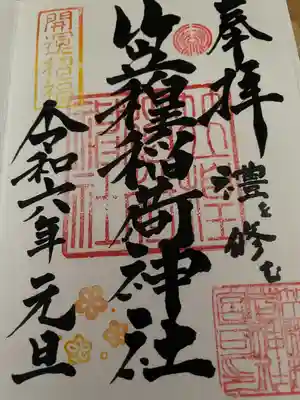 奉拝
禮を修む
笠䅣稲荷神社
開運招福
令和六年 元旦